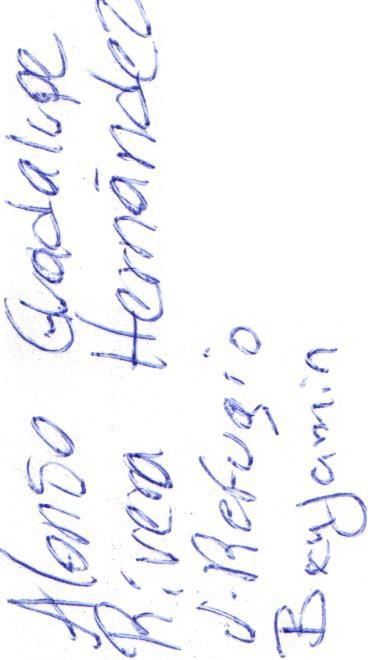 Alonso Guadalupe
Rivera Hernández
J. Refugio
Benjamin